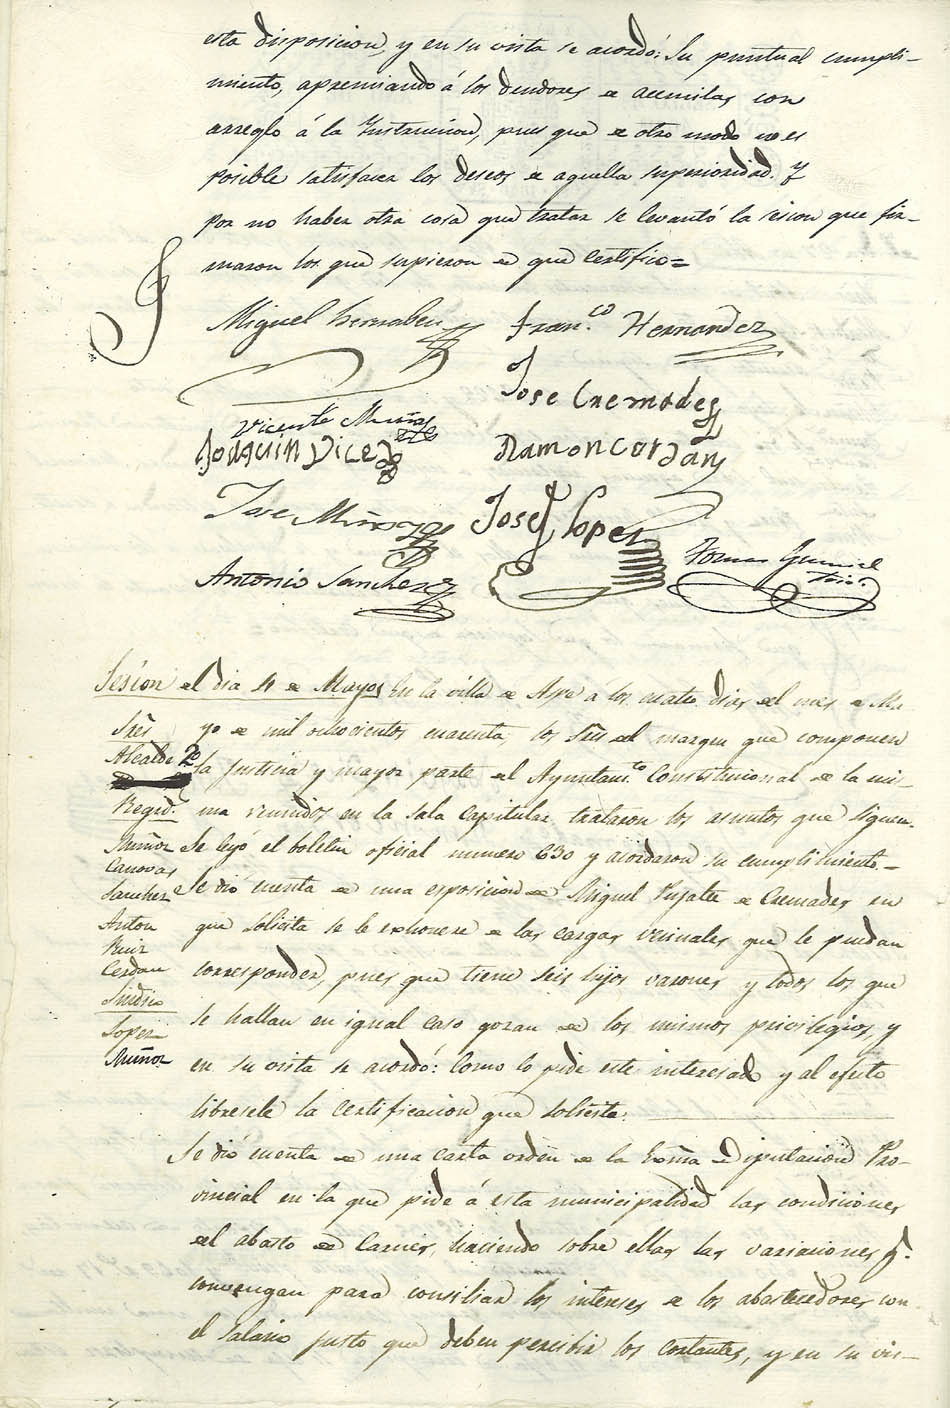 esta disposicion, y en su vista se acordó: Su puntual cumpli-
miento, apremiando á los deudores de acemilas con
arreglo á la Instruccion, pues que de otro modo no es
posible satisfacer los deseos de aquella superioridad. Y
por no haber otra cosa que tratar se levantó la sesion que fir-
maron los que supieron de que certifico =
Miguel Fran.co Hernandez
Jose Cremades
Vicente Muñoz
Joaquin Vicedo Ramon Cerdan
Jose Muñoz Jose Lopez
Tomas
Antonio Sanchez
Sesion del dia 4 de Mayo
En la villa de Aspe a los cuatro dias del mes de Ma-
yo de mil ochocientos cuarenta, los Sres del margen que componen
la Justicia y mayor parte del Ayuntam.to Constitucional de la mis-
ma reunidos en la Sala Capitular trataron los asuntos que siguen.
Se leyó el boletin oficial numero 630 y acordaron su cumplimiento.=
Se dió cuenta de una exposicion de Miguel Pujalte de Cremades en
que solicita se le exonere de las cargas vecinales que le puedan
corresponder, pues que tiene seis hijos varones y todos los que
se hallan en igual caso gozan de los mismos privilegios, y
en su vista se acordó: Como lo pide este interesado y al efecto
libresele la certificacion que solicita.
Se dió cuenta de una carta orden de la Exma Diputacion Pro-
vincial en la que pide á esta municipalidad las condiciones
del abasto de Carnes, haciendo sobre ellas las variaciones q.
convengan para consiliar los intereses de los abastecedores con
el salario justo que deben percibir los cortantes, y en su vis-
Sres
Alcalde 2.o
Regid.s
Muñoz
Canovas
Sanchez
Anton
Ruiz
Cerdan
Sindico
Lopez
Muñoz